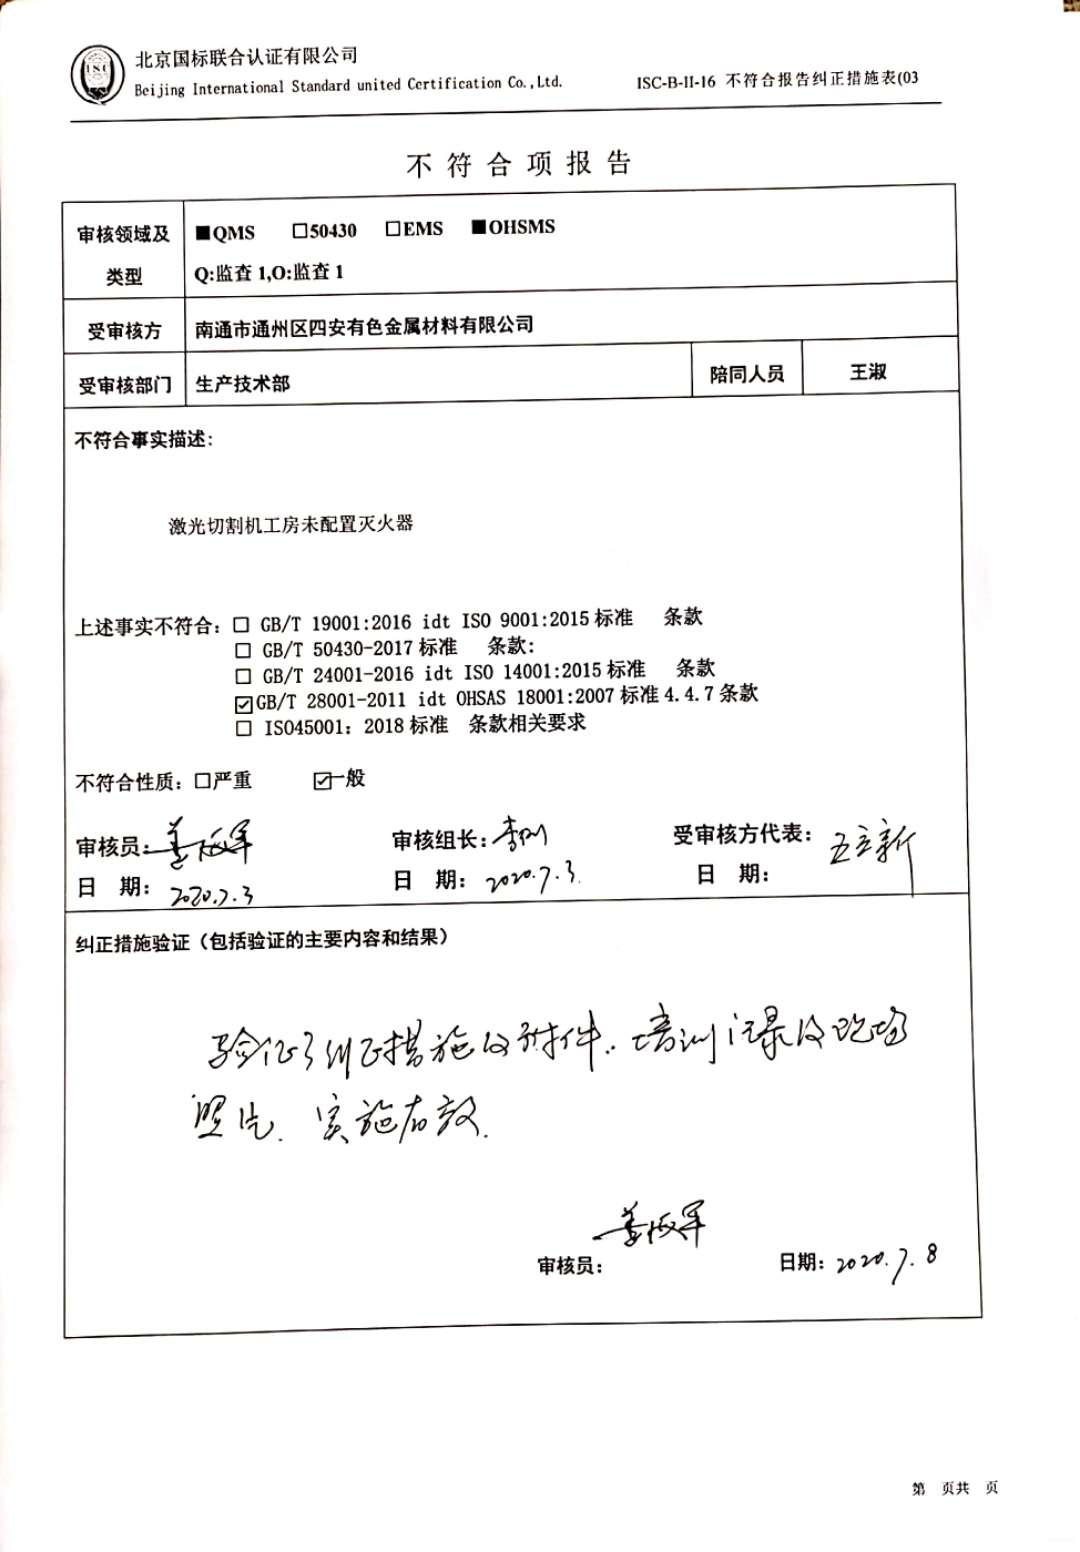 北京国标联合认证有限公司
Beijing International Standard united Certification Co.,Ltd.
ISC-B-II-16 不符合报告纠正措施表(03
不符合项报告
审核领域及类型
■QMS □50430 □EMS ■OHSMS
Q:监查 1,O:监查 1
受审核方 南通市通州区四安有色金属材料有限公司
受审核部门 生产技术部 陪同人员 王淑
不符合事实描述:
激光切割机工房未配置灭火器
上述事实不符合: □ GB/T 19001:2016 idt ISO 9001:2015 标准 条款
□ GB/T 50430-2017 标准 条款:
□ GB/T 24001-2016 idt ISO 14001:2015 标准 条款
☑GB/T 28001-2011 idt OHSAS 18001:2007 标准 4.4.7 条款
□ ISO45001: 2018 标准 条款相关要求
不符合性质: □严重 ☑一般
审核员: 审核组长: 受审核方代表:
日 期: 2020.7.3 日 期: 2020.7.3. 日 期:
纠正措施验证（包括验证的主要内容和结果）
验证了纠正措施的附件、培训记录及现场
照片. 实施有效.
审核员: 日期: 2020.7.8
第 页共 页